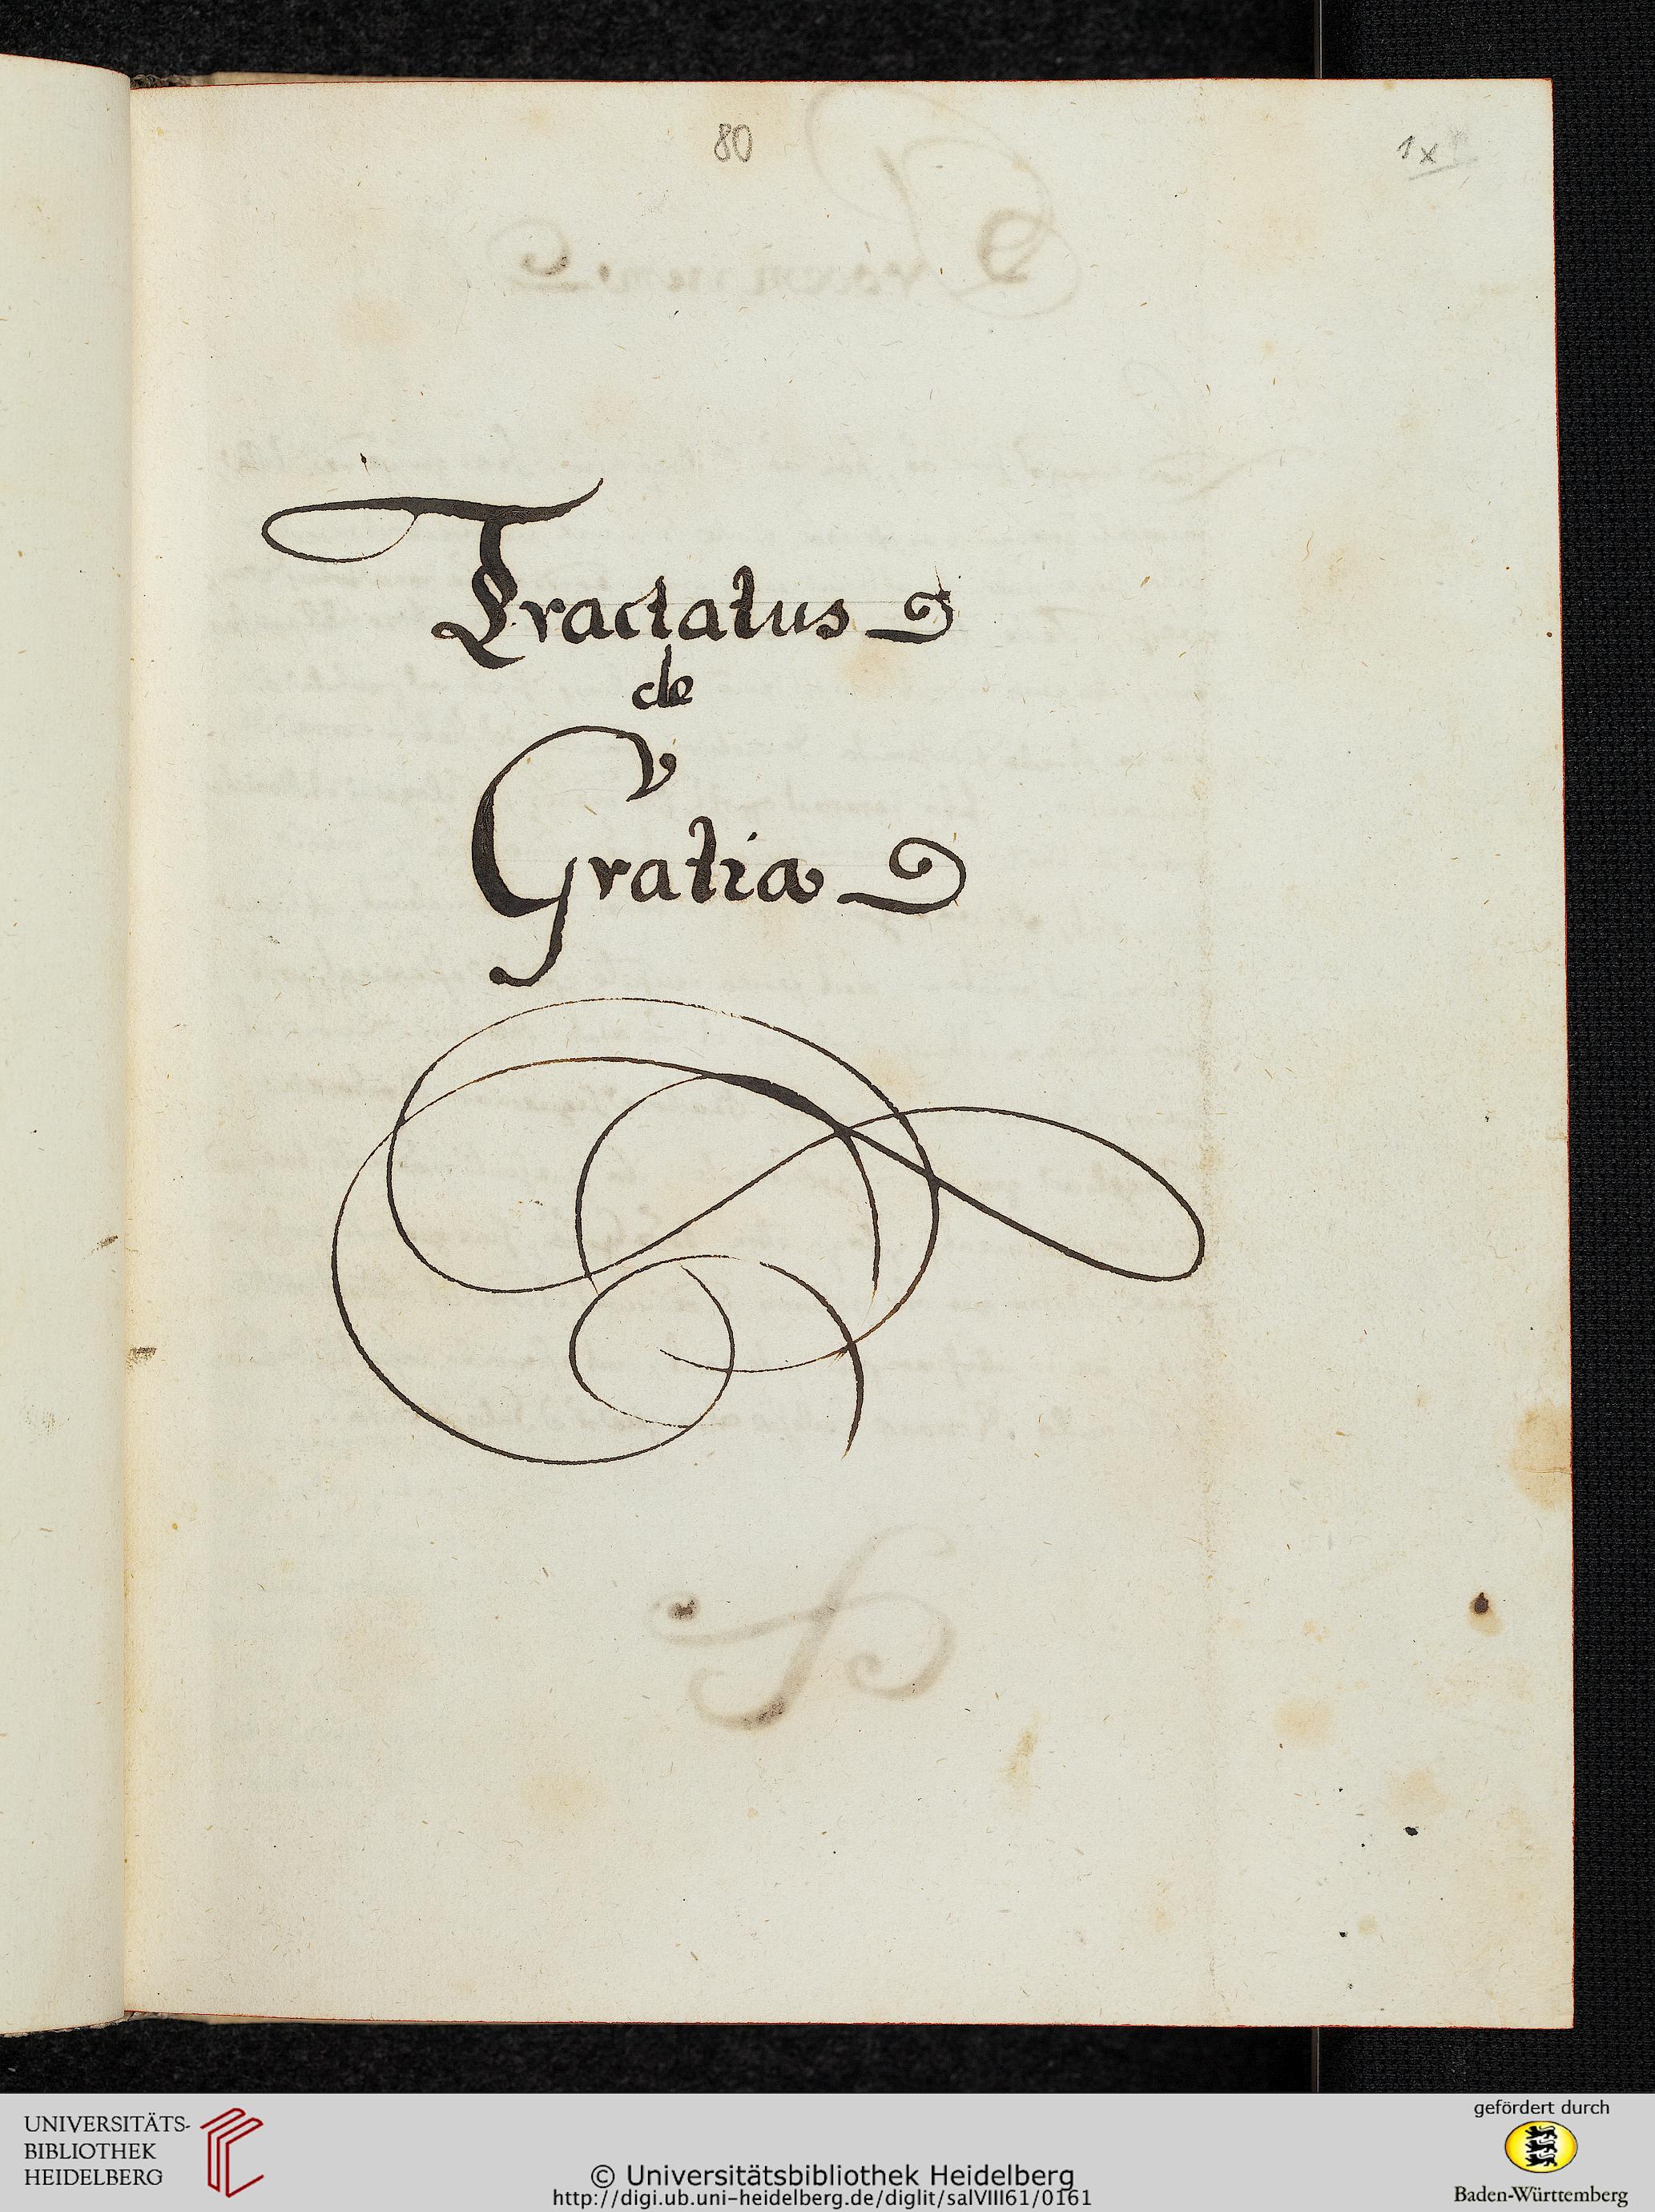 80
1x
Tractatus
de
Gratia
UNIVERSITÄTS-
BIBLIOTHEK
HEIDELBERG
© Universitätsbibliothek Heidelberg
http://digi.ub.uni-heidelberg.de/diglit/salVIII61/0161
gefördert durch
Baden-Württemberg